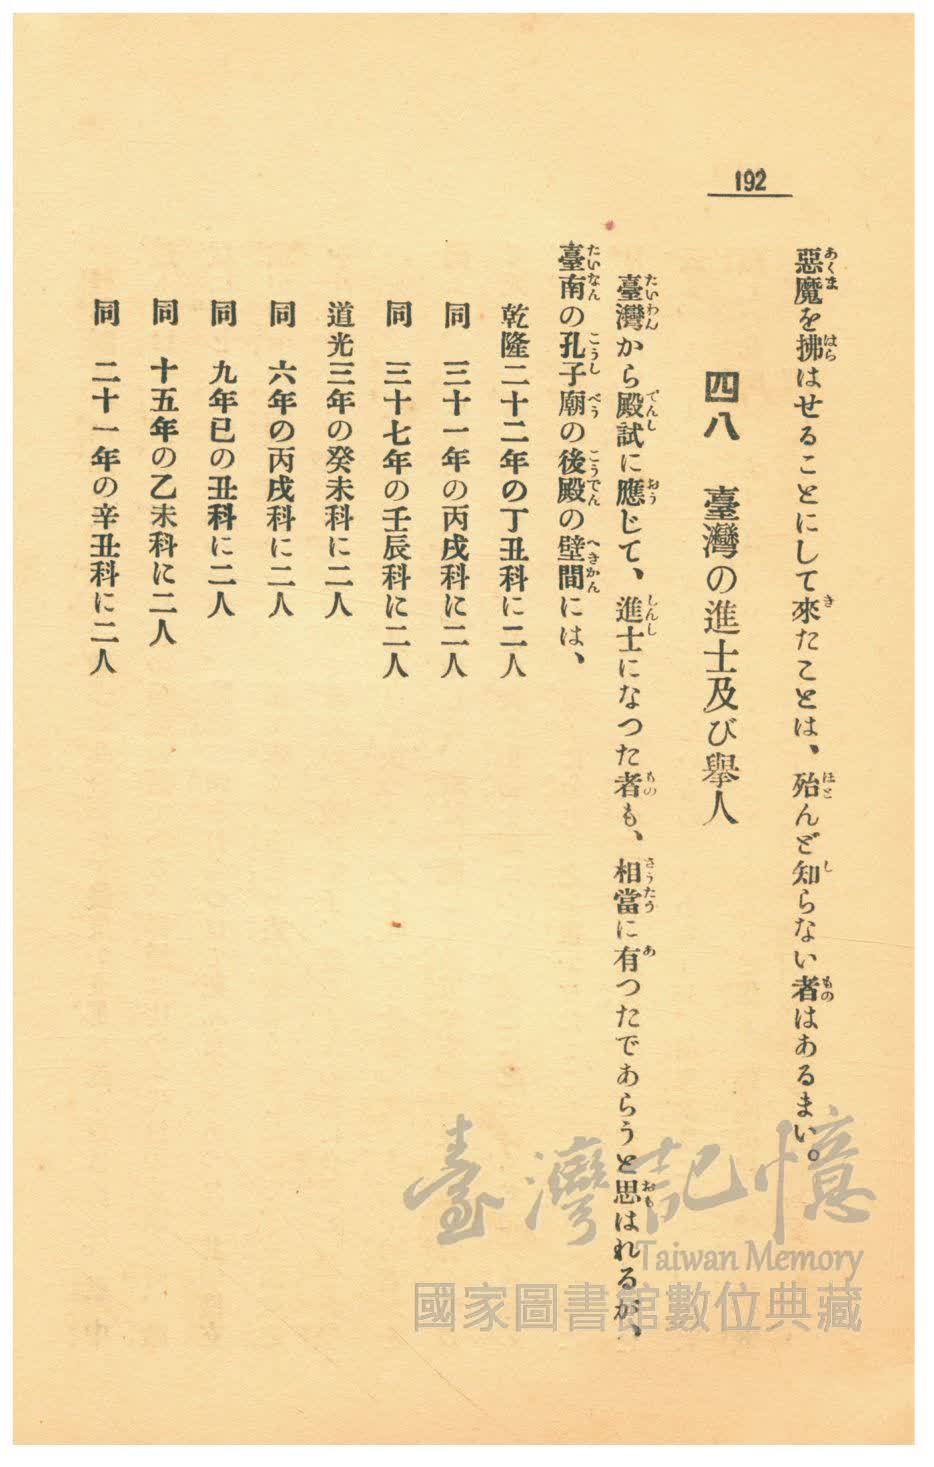 192
惡魔を拂はせることにして來たことは、殆んど知らない者はあるまい。
あくま はら き ほと し もの
四八 臺灣の進士及び擧人
臺灣から殿試に應じて、進士になつた者も、相當に有つたであらうと思はれるが、
たいわん でんし おう しんし もの さうたう あ おも
臺南の孔子廟の後殿の壁間には、
たいなん こうし べう こうでん へきかん
乾隆二十二年の丁丑科に二人
同 三十一年の丙戌科に二人
同 三十七年の壬辰科に二人
道光三年の癸未科に二人
同 六年の丙戌科に二人
同 九年已の丑科に二人
同 十五年の乙未科に二人
同 二十一年の辛丑科に二人
臺灣記憶
Taiwan Memory
國家圖書館數位典藏